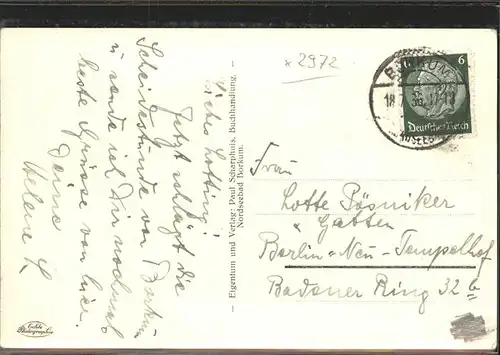 x 2972
Liebes Lotting!
Jetzt schlägt die
Scheidestunde von Borkum
u. sende ich Dir nochmals
beste Grüsse von hier.
Deine
Helene K.
Eigentum und Verlag: Paul Scharphuis, Buchhandlung,
Nordseebad Borkum.
6
Deutsches Reich
BORKUM
18.7.
Frau
Lotte Pösniker
& Gatten
Berlin-Neu-Tempelhof
Badener Ring 32 b
Echte
Photographie